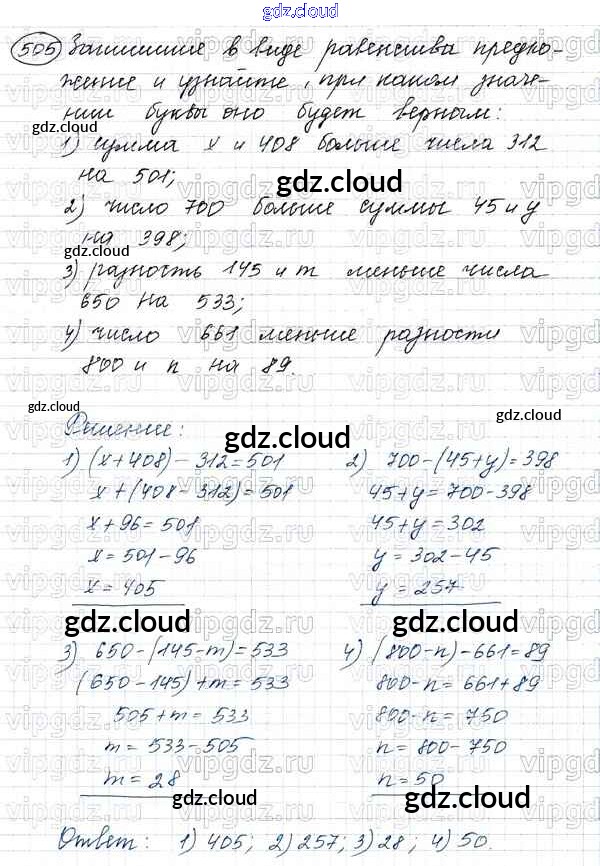 gdz.cloud
505 Запишите в виде равенства предло-
жение и узнайте, при каком значе-
нии буквы оно будет верным:
1) сумма x и 408 больше числа 312
на 501;
2) число 700 больше суммы 45 и y
на 398;
3) разность 145 и m меньше числа
650 на 533;
4) число 661 меньше разности
800 и n на 89.
Решение:
1) (x+408)-312=501
x+(408-312)=501
x+96=501
x=501-96
x=405
2) 700-(45+y)=398
45+y=700-398
45+y=302
y=302-45
y=257
3) 650-(145-m)=533
(650-145)+m=533
505+m=533
m=533-505
m=28
4) (800-n)-661=89
800-n=661+89
800-n=750
n=800-750
n=50
Ответ: 1) 405; 2) 257; 3) 28; 4) 50.